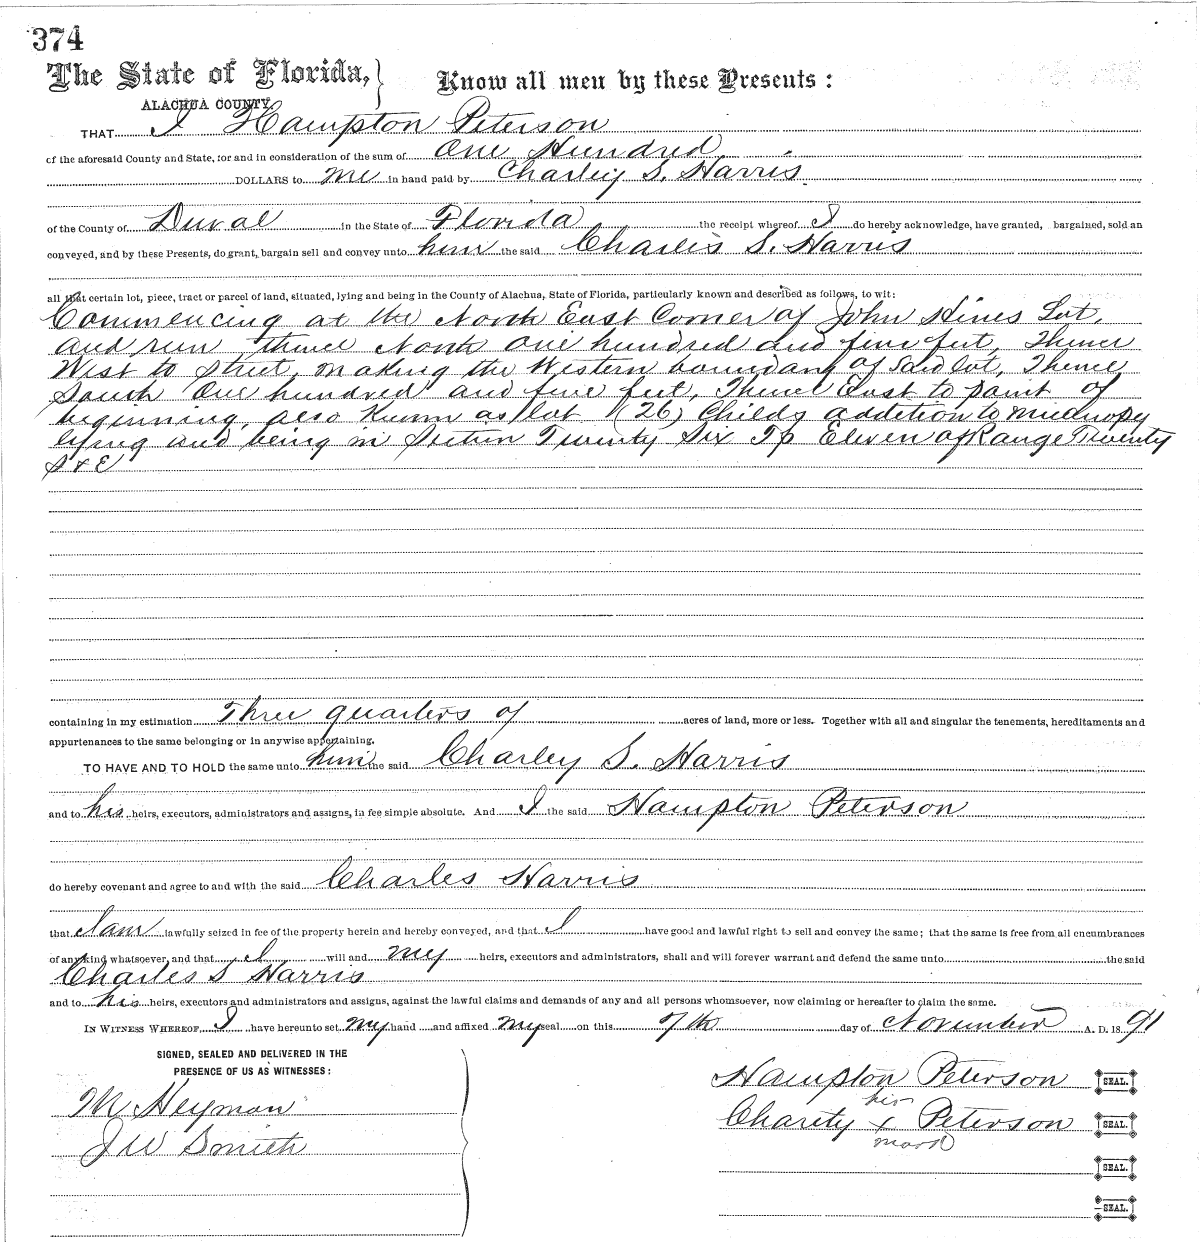 374
The State of Florida, } Know all men by these Presents :
ALACHUA COUNTY.
THAT I Hampton Peterson
of the aforesaid County and State, for and in consideration of the sum of One Hundred
DOLLARS to me in hand paid by Charley S. Harris
of the County of Duval in the State of Florida the receipt whereof I do hereby acknowledge, have granted, bargained, sold an
conveyed, and by these Presents, do grant, bargain sell and convey unto him the said Charles S. Harris
all that certain lot, piece, tract or parcel of land, situated, lying and being in the County of Alachua, State of Florida, particularly known and described as follows, to wit:
Commencing at the North East Corner of John Hines Lot,
and run thence North one hundred and five feet, Thence
West to street, making the Western boundary of Said lot, Thence
South One hundred and five feet, Thence East to point of
beginning, also Known as lot (26) Childs addition to Micanopy
lying and being in Section Twenty Six Tp Eleven of Range Twenty
S & E
containing in my estimation Three quarters of acres of land, more or less. Together with all and singular the tenements, hereditaments and
appurtenances to the same belonging or in anywise appertaining.
TO HAVE AND TO HOLD the same unto him the said Charley S. Harris
and to his heirs, executors, administrators and assigns, in fee simple absolute. And I the said Hampton Peterson
do hereby covenant and agree to and with the said Charles Harris
that I am lawfully seized in fee of the property herein and hereby conveyed, and that I have good and lawful right to sell and convey the same; that the same is free from all encumbrances
of any kind whatsoever, and that I will and my heirs, executors and administrators, shall and will forever warrant and defend the same unto the said
Charles S Harris
and to his heirs, executors and administrators and assigns, against the lawful claims and demands of any and all persons whomsoever, now claiming or hereafter to claim the same.
IN WITNESS WHEREOF, I have hereunto set my hand and affixed my seal on this 7th day of November A. D. 1891
SIGNED, SEALED AND DELIVERED IN THE
PRESENCE OF US AS WITNESSES :
M Heyman
J W Smith
Hampton Peterson SEAL.
his
Charity x Peterson SEAL.
mark
SEAL.
SEAL.